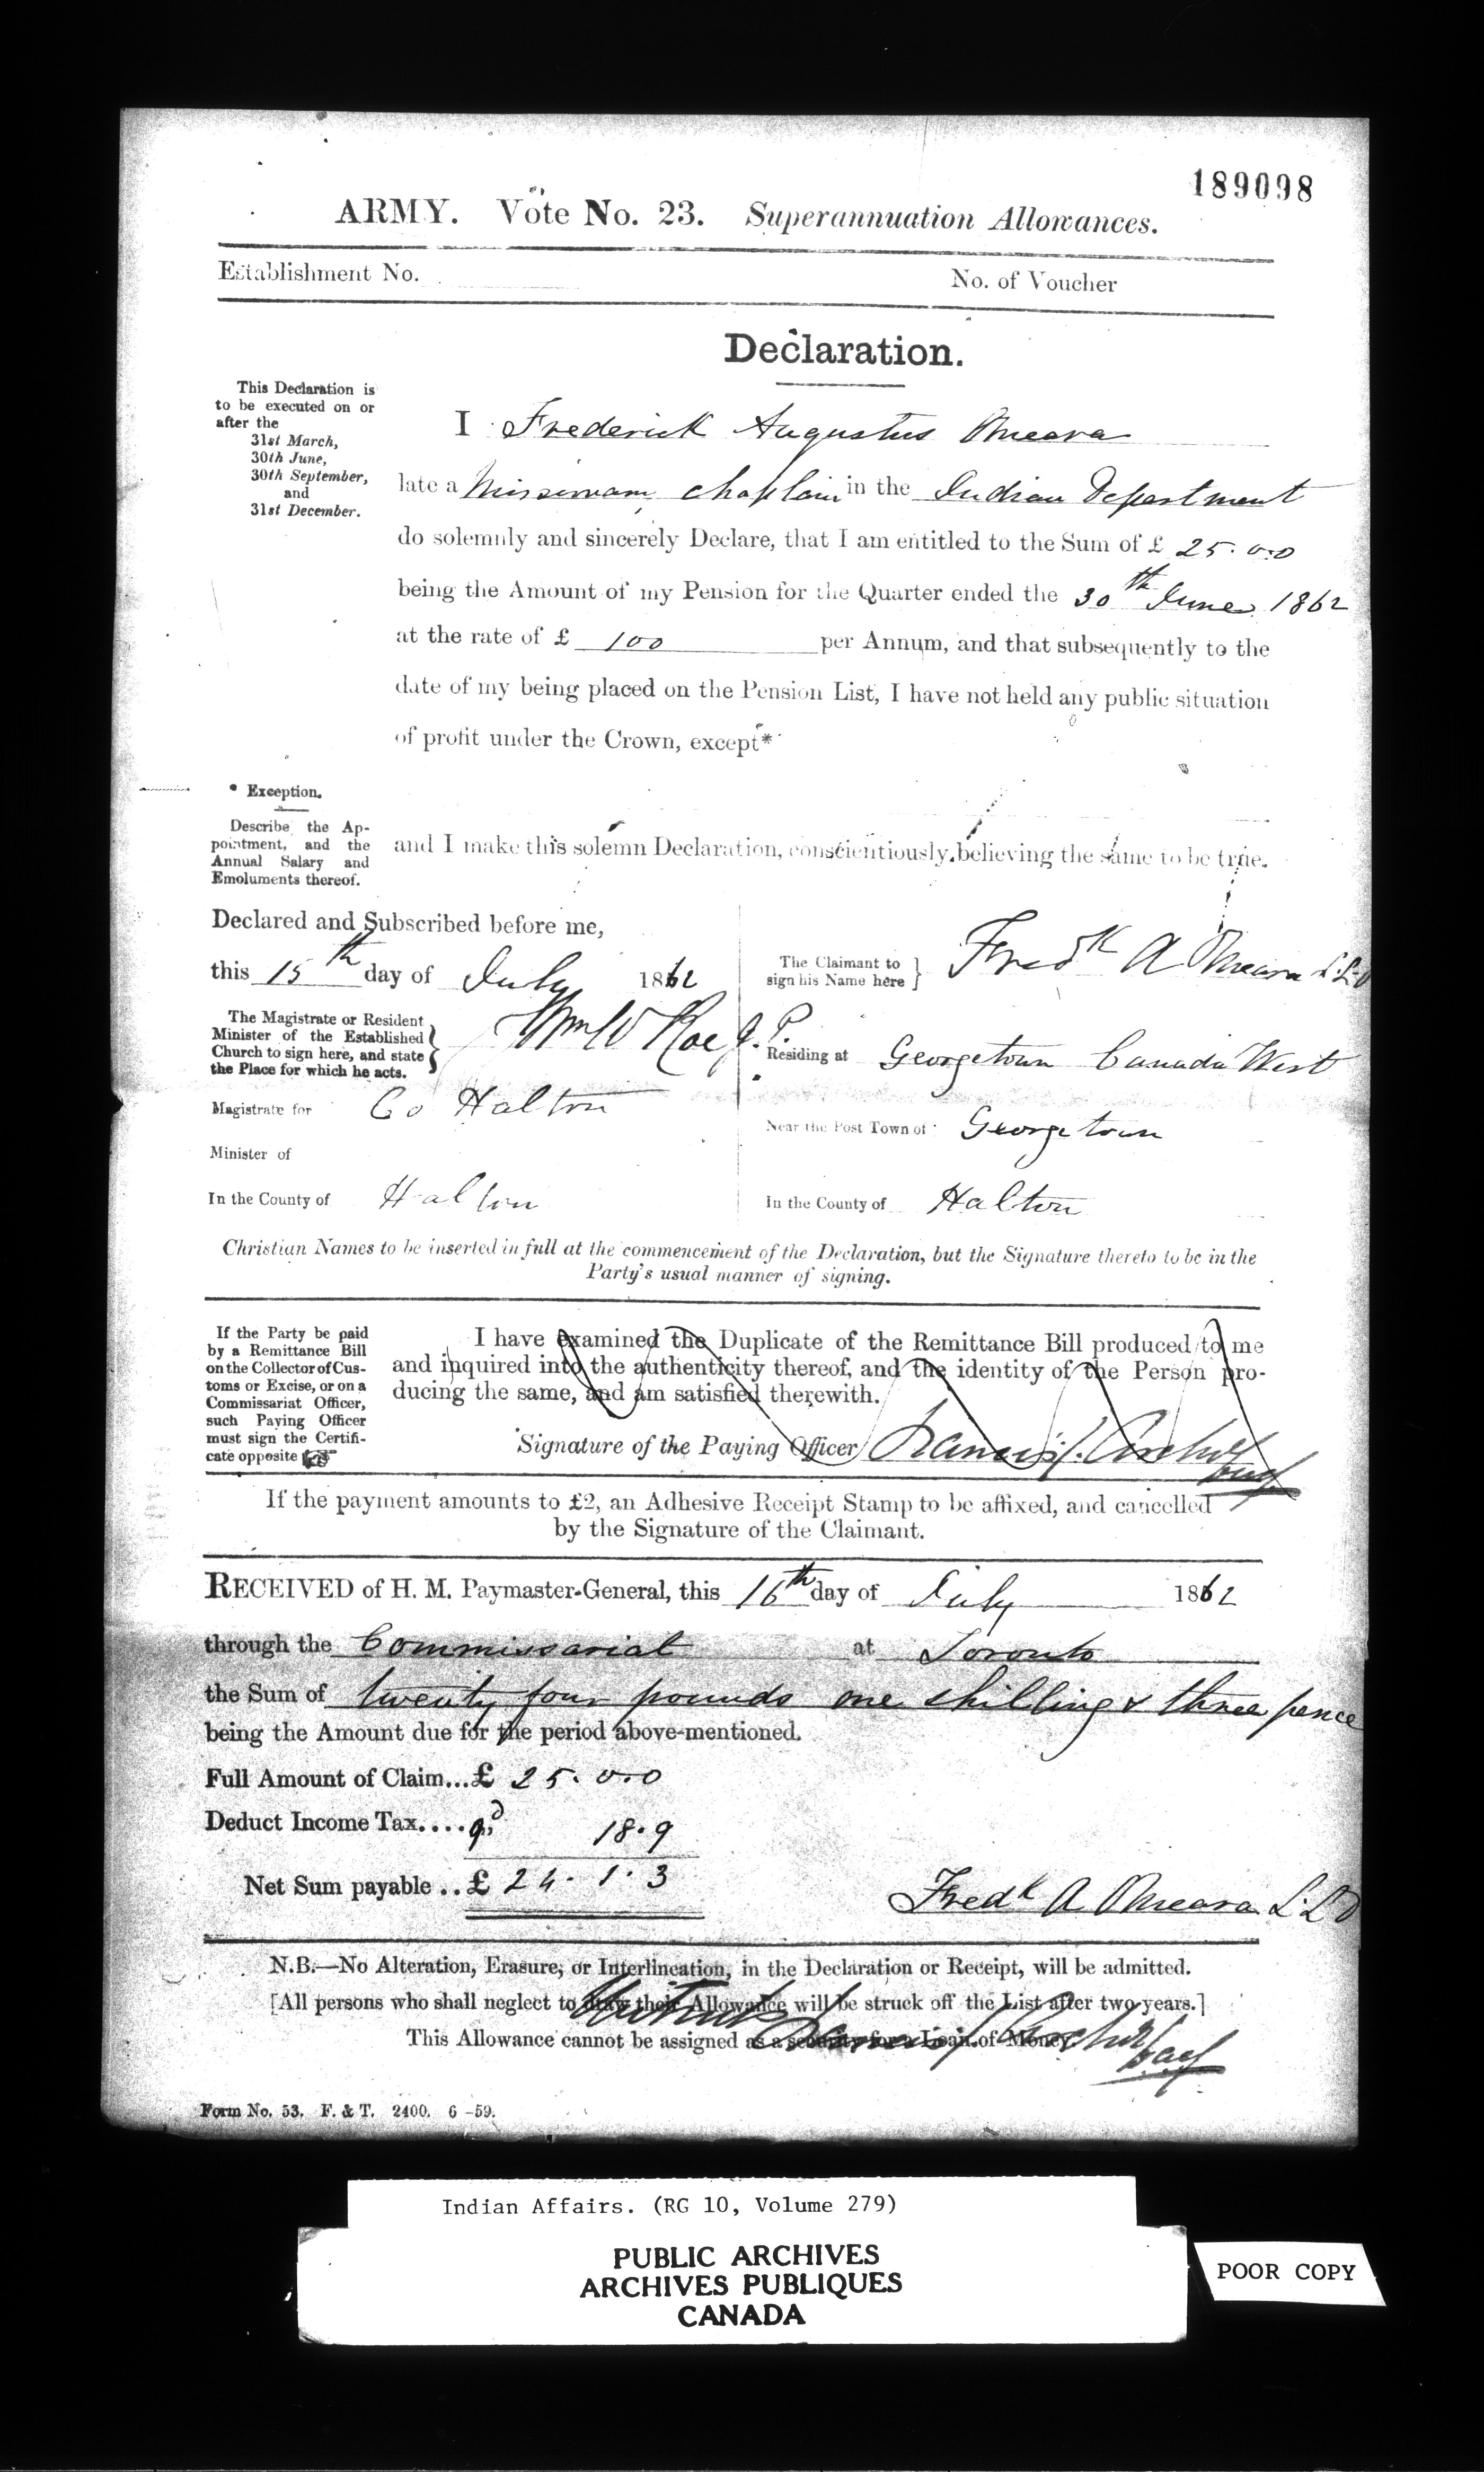 189098
ARMY. Vote No. 23. Superannuation Allowances.
Establishment No.
No. of Voucher
Declaration.
This Declaration is
to be executed on or
after the
31st March,
30th June,
30th September,
and
31st December.
I Frederick Augustus Omeara
late a Missionary chaplain in the Indian Department
do solemnly and sincerely Declare, that I am entitled to the Sum of £ 25.0.0
being the Amount of my Pension for the Quarter ended the 30th June 1862
at the rate of £ 100 per Annum, and that subsequently to the
date of my being placed on the Pension List, I have not held any public situation
of profit under the Crown, except*
* Exception.
Describe the Ap-
pointment, and the
Annual Salary and
Emoluments thereof.
and I make this solemn Declaration, conscientiously believing the same to be true.
Declared and Subscribed before me,
this 15th day of July 1862
The Magistrate or Resident
Minister of the Established
Church to sign here, and state
the Place for which he acts.
Wm W Roe J.P.
Magistrate for Co Halton
Minister of
In the County of Halton
The Claimant to
sign his Name here
Fredk A Omeara L.L.D
Residing at Georgetown Canada West
Near the Post Town of Georgetown
In the County of Halton
Christian Names to be inserted in full at the commencement of the Declaration, but the Signature thereto to be in the
Party's usual manner of signing.
If the Party be paid
by a Remittance Bill
on the Collector of Cus-
toms or Excise, or on a
Commissariat Officer,
such Paying Officer
must sign the Certifi-
cate opposite
I have examined the Duplicate of the Remittance Bill produced to me
and inquired into the authenticity thereof, and the identity of the Person pro-
ducing the same, and am satisfied therewith.
Signature of the Paying Officer
If the payment amounts to £2, an Adhesive Receipt Stamp to be affixed, and cancelled
by the Signature of the Claimant.
RECEIVED of H. M. Paymaster-General, this 16th day of July 1862
through the Commissariat at Toronto
the Sum of twenty four pounds one shilling & three pence
being the Amount due for the period above-mentioned.
Full Amount of Claim...£ 25.0.0
Deduct Income Tax.... 9d 18.9
Net Sum payable .. £ 24.1.3
Fredk A Omeara L.L.D
N.B.—No Alteration, Erasure, or Interlineation, in the Declaration or Receipt, will be admitted.
[All persons who shall neglect to draw their Allowance will be struck off the List after two years.]
This Allowance cannot be assigned as a security for a Loan of Money.
Form No. 53. F. & T. 2400. 6-59.
Indian Affairs. (RG 10, Volume 279)
PUBLIC ARCHIVES
ARCHIVES PUBLIQUES
CANADA
POOR COPY